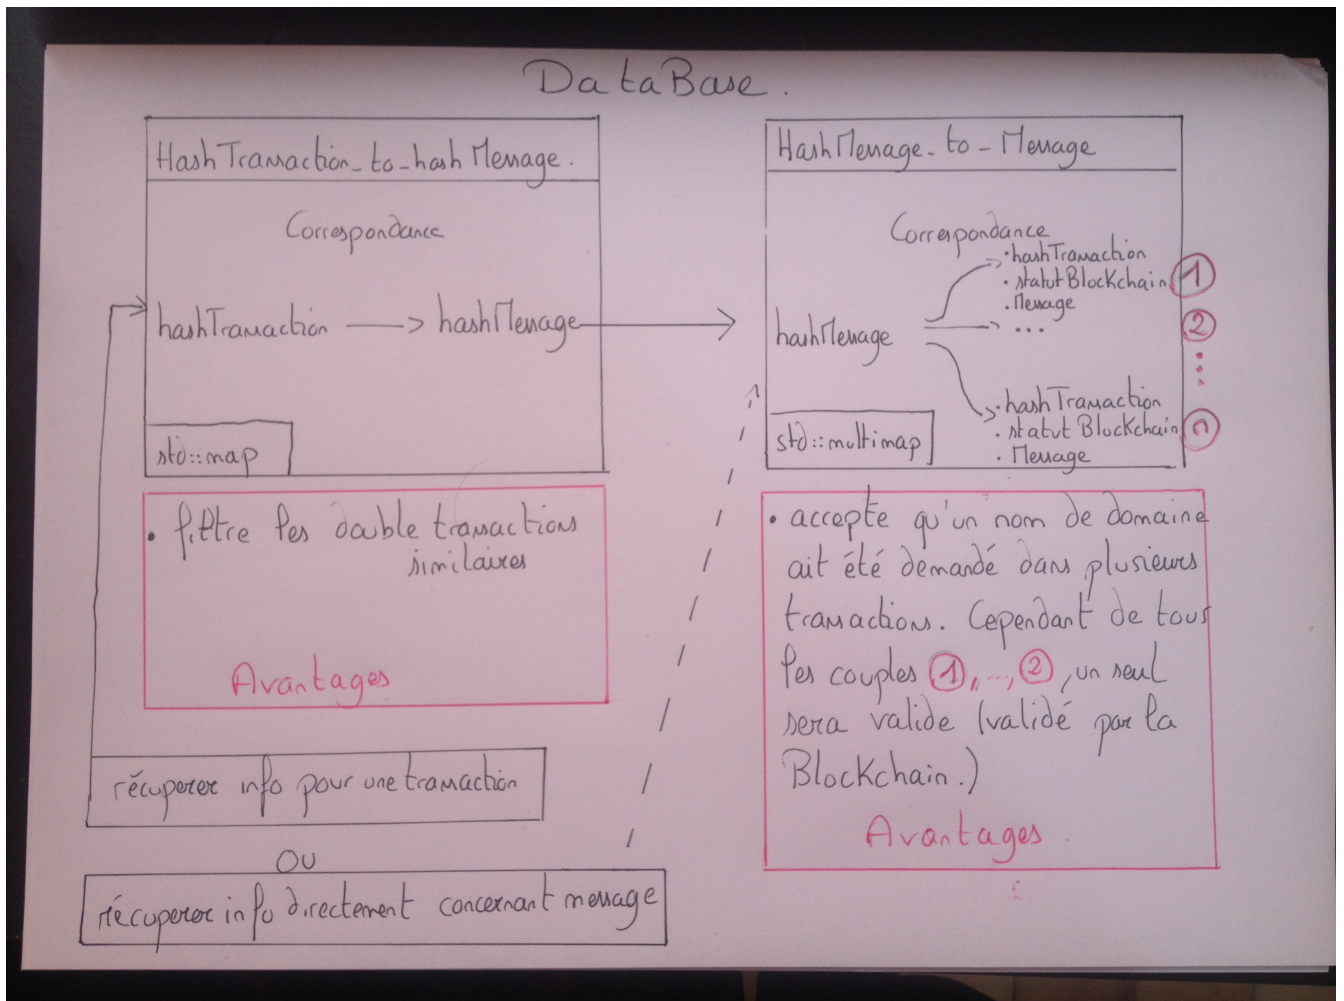 DataBase.
HashTransaction_to_hashMessage.
Correspondance
hashTransaction → hashMessage
std::map
• filtre les double transactions
similaires
Avantages
récuperer info pour une transaction
OU
récuperer info directement concernant message
HashMessage_to_Message
Correspondance
• hashTransaction
• statut BlockChain 1
• Message
• ... 2
hashMessage
• hashTransaction
• statut BlockChain n
• Message
std::multimap
• accepte qu'un nom de domaine
ait été demandé dans plusieurs
transactions. Cependant de tous
les couples 1,...,2, un seul
sera valide (validé par la
BlockChain.)
Avantages.